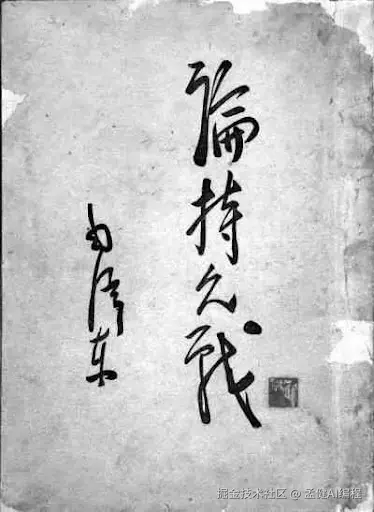 論持久戰
毛澤东
掘金技术社区 @ 孟健AI编程